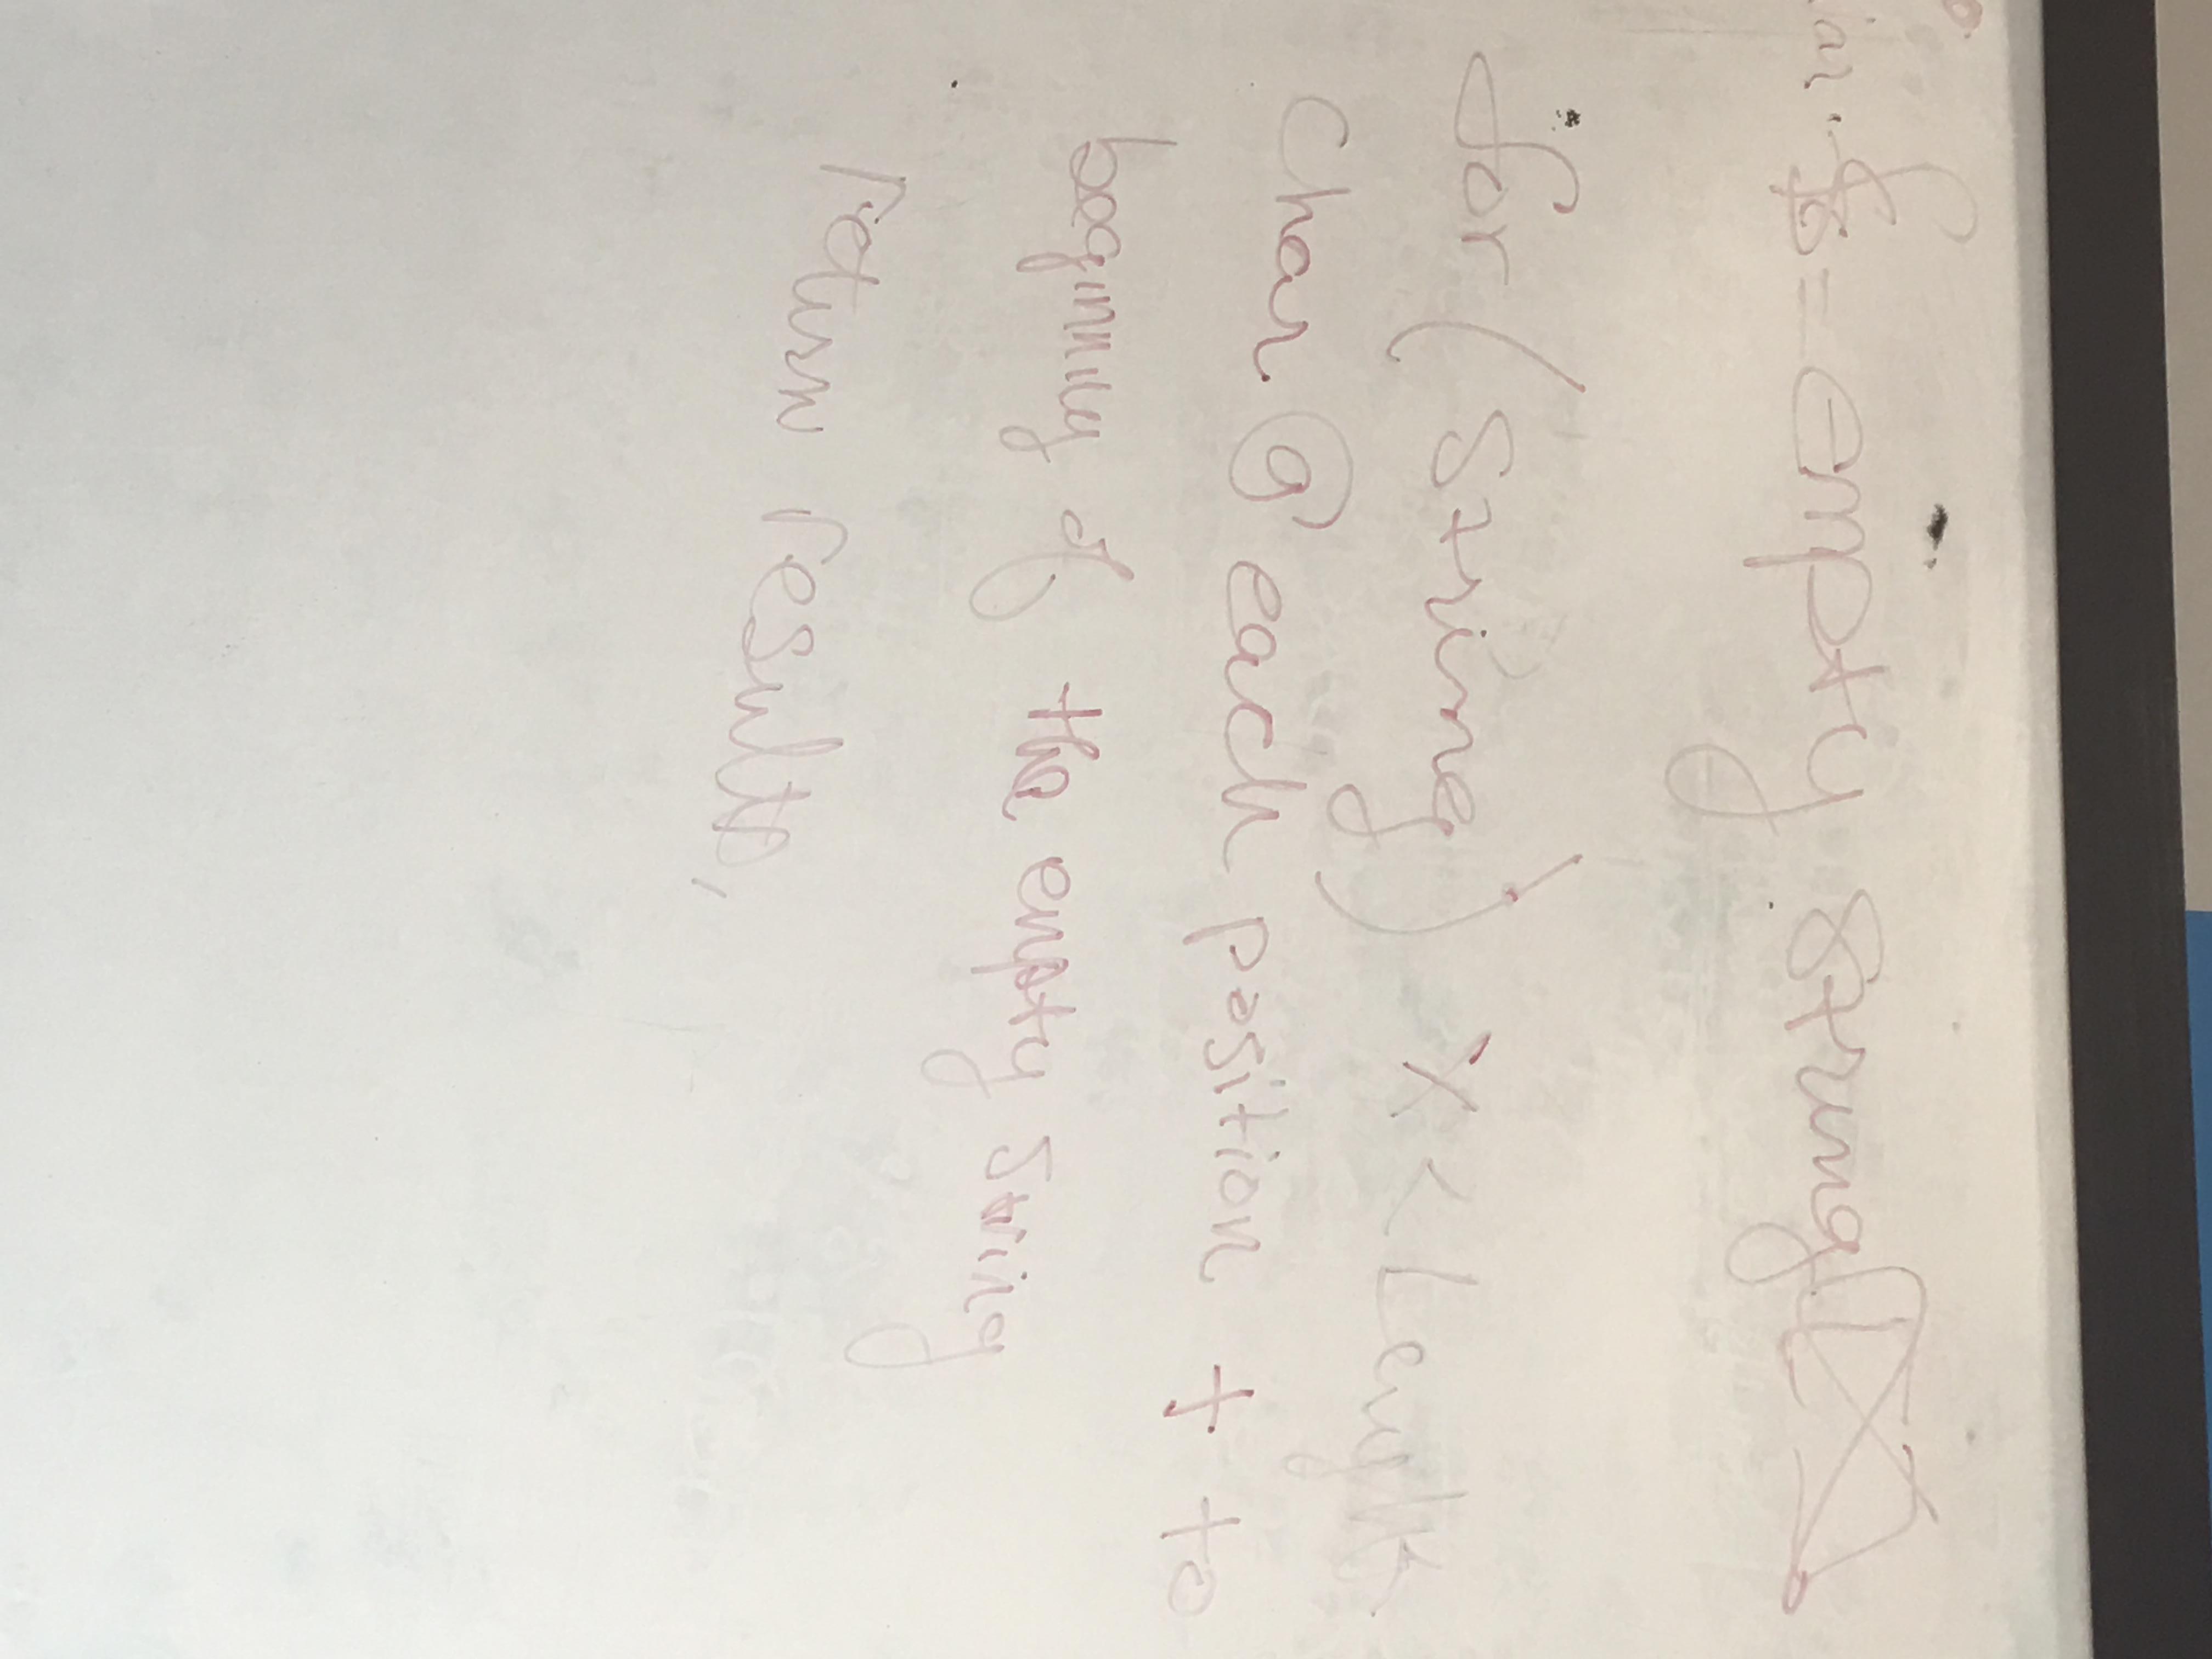 = empty string
for (string) x < Length
char @ each position + to
beginning of the empty string
return results,